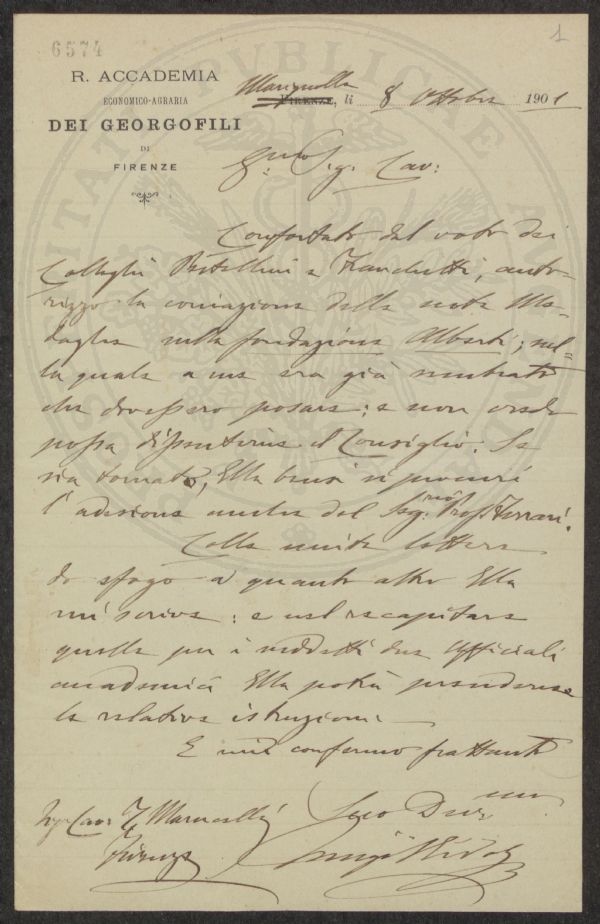 6574
1
R. ACCADEMIA
ECONOMICO-AGRARIA
DEI GEORGOFILI
DI
FIRENZE
Marignolle
FIRENZE, li 8 Ottobre 1901
Sig. Cav:
Confortato dal voto dei
Colleghi Pestellini e Franchetti, auto-
rizzo la coniazione delle note Me-
daglie sulla fondazione Alberti; nel-
la quale a me era già sembrato
che dovessero posare: e non credo
possa disputarne il Consiglio. Se
sia tornato, Ella bensì si procuri
l'adesione anche del Seg.rio Prof. Ferrari.
Colle unite lettere
do sfogo a quanto altro Ella
mi scrive: e nel recapitare
quelle per i suddetti due Ufficiali
accademici Ella potrà prenderne
le relative istruzioni.
E mi confermo frattanto
Suo Dev.mo
Cav: Marucelli
Firenze
Luigi Ridolfi
PVBLICAE